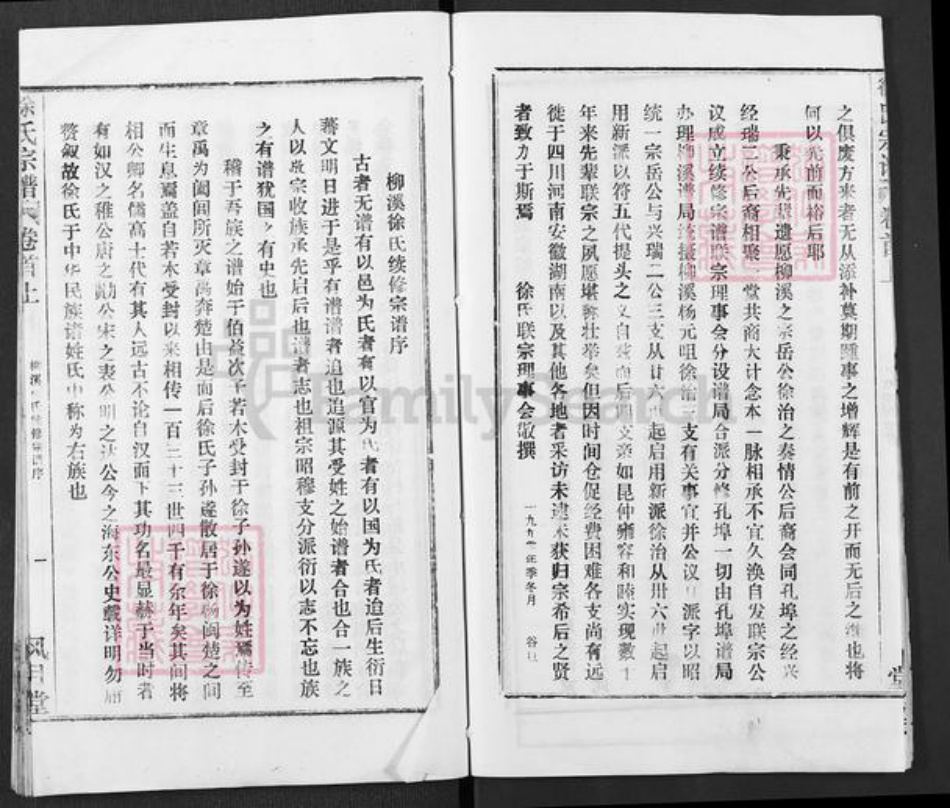 之俱废方来者无从添补莫期踵事之增辉是有前之开而无后之继也将
何以光前而裕后耶
秉承先辈遗愿柳溪之宗岳公徐治之奏情公后裔会同孔埠之经兴
经瑞二公后裔相聚一堂共商大计念本一脉相承不宜久涣自发联宗公
议成立续修宗谱联宗理事会分设谱局合派分修孔埠一切由孔埠谱局
办理柳溪谱局统摄柳溪杨元咀徐治三支有关事宜并公议 派字以昭
统一宗岳公与兴瑞二公三支从廿六世起启用新派徐治从卅六世起启
用新派以符五代提头之义自兹而后四支亲如昆仲雍容和睦实现数十
年来先辈联宗之夙愿堪称壮举矣但因时间仓促经费困难各支尚有远
徙于四川河南安徽湖南以及其他各地者采访未逮未获归宗希后之贤
者致力于斯焉
徐氏联宗理事会敬撰
一九九 年季冬月 谷
徐氏宗谱 卷首上
柳溪徐氏续修宗谱序
古者无谱有以邑为氏者有以官为氏者有以国为氏者迨后生衍日
蕃文明日进于是乎有谱谱者追也追源其受姓之始谱者合也合一族之
人以敬宗收族承先启后也谱者志也祖宗昭穆支分派衍以志不忘也族
之有谱犹国之有史也
稽于吾族之谱始于伯益次子若木受封于徐子孙遂以为姓 传至
章禹为阖闾所灭章禹奔楚由是而后徐氏子孙遂散居于徐扬闽楚之间
而生息焉盖自若木受封以来相传一百二十三世四千有余年矣其间将
相公卿名儒高士代有其人远古不论自汉而下其功名最显赫于当时者
有如汉之稚公唐之勣公宋之 公明之达公今之海东公史载详明勿庸
赘叙故徐氏于中华民族诸姓氏中称为右族也
徐氏宗谱 卷首上
柳溪徐氏续修宗谱序
一
堂